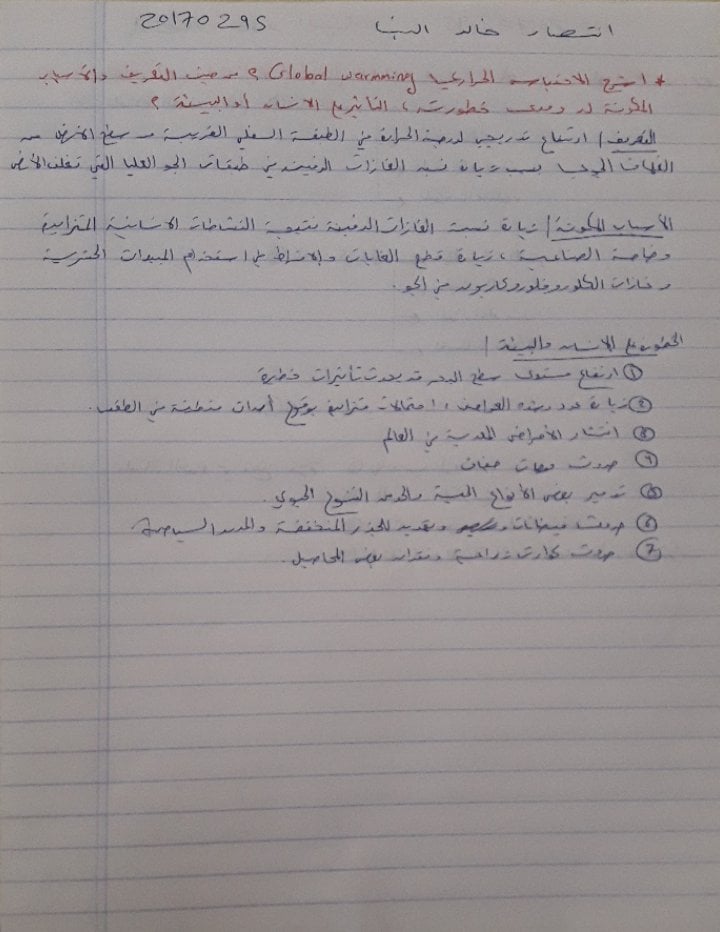 انتصار خالد البنا 20170295
* اشرح الاحتباس الحراري Global warmning ؟ من حيث التعريف والأسباب
المكونة له ومدى خطورته، التأثير على الانسان أو البيئة ؟
التعريف / ارتفاع تدريجي لدرجة الحرارة في الطبقة السفلى القريبة من سطح الأرض من
الغلاف الجوي بسبب زيادة نسبة الغازات الدفيئة في طبقات الجو العليا التي تغلف الأرض
الأسباب المكونة / زيادة نسبة الغازات الدفيئة نتيجة النشاطات الانسانية المتزايدة
وخاصة الصناعية ، زيادة قطع الغابات والإفراط في استخدام المبيدات الحشرية
وغازات الكلوروفلوروكاربون في الجو.
الخطورة على الانسان والبيئة /
① ارتفاع مستوى سطح البحر قد يحدث تأثيرات خطرة
② زيادة عدد وشدة العواصف ، احتمالات متزايدة بوقوع أحداث متطرفة في الطقس.
③ انتشار الأمراض المعدية في العالم
④ حدوث موجات جفاف
⑤ تدمير بعض الأنواع الحية والحد من التنوع الحيوي.
⑥ حدوث فيضانات وتهديد للجزر المنخفضة والمدن الساحلية
⑦ حدوث كوارث زراعية وفقدان بعض المحاصيل.